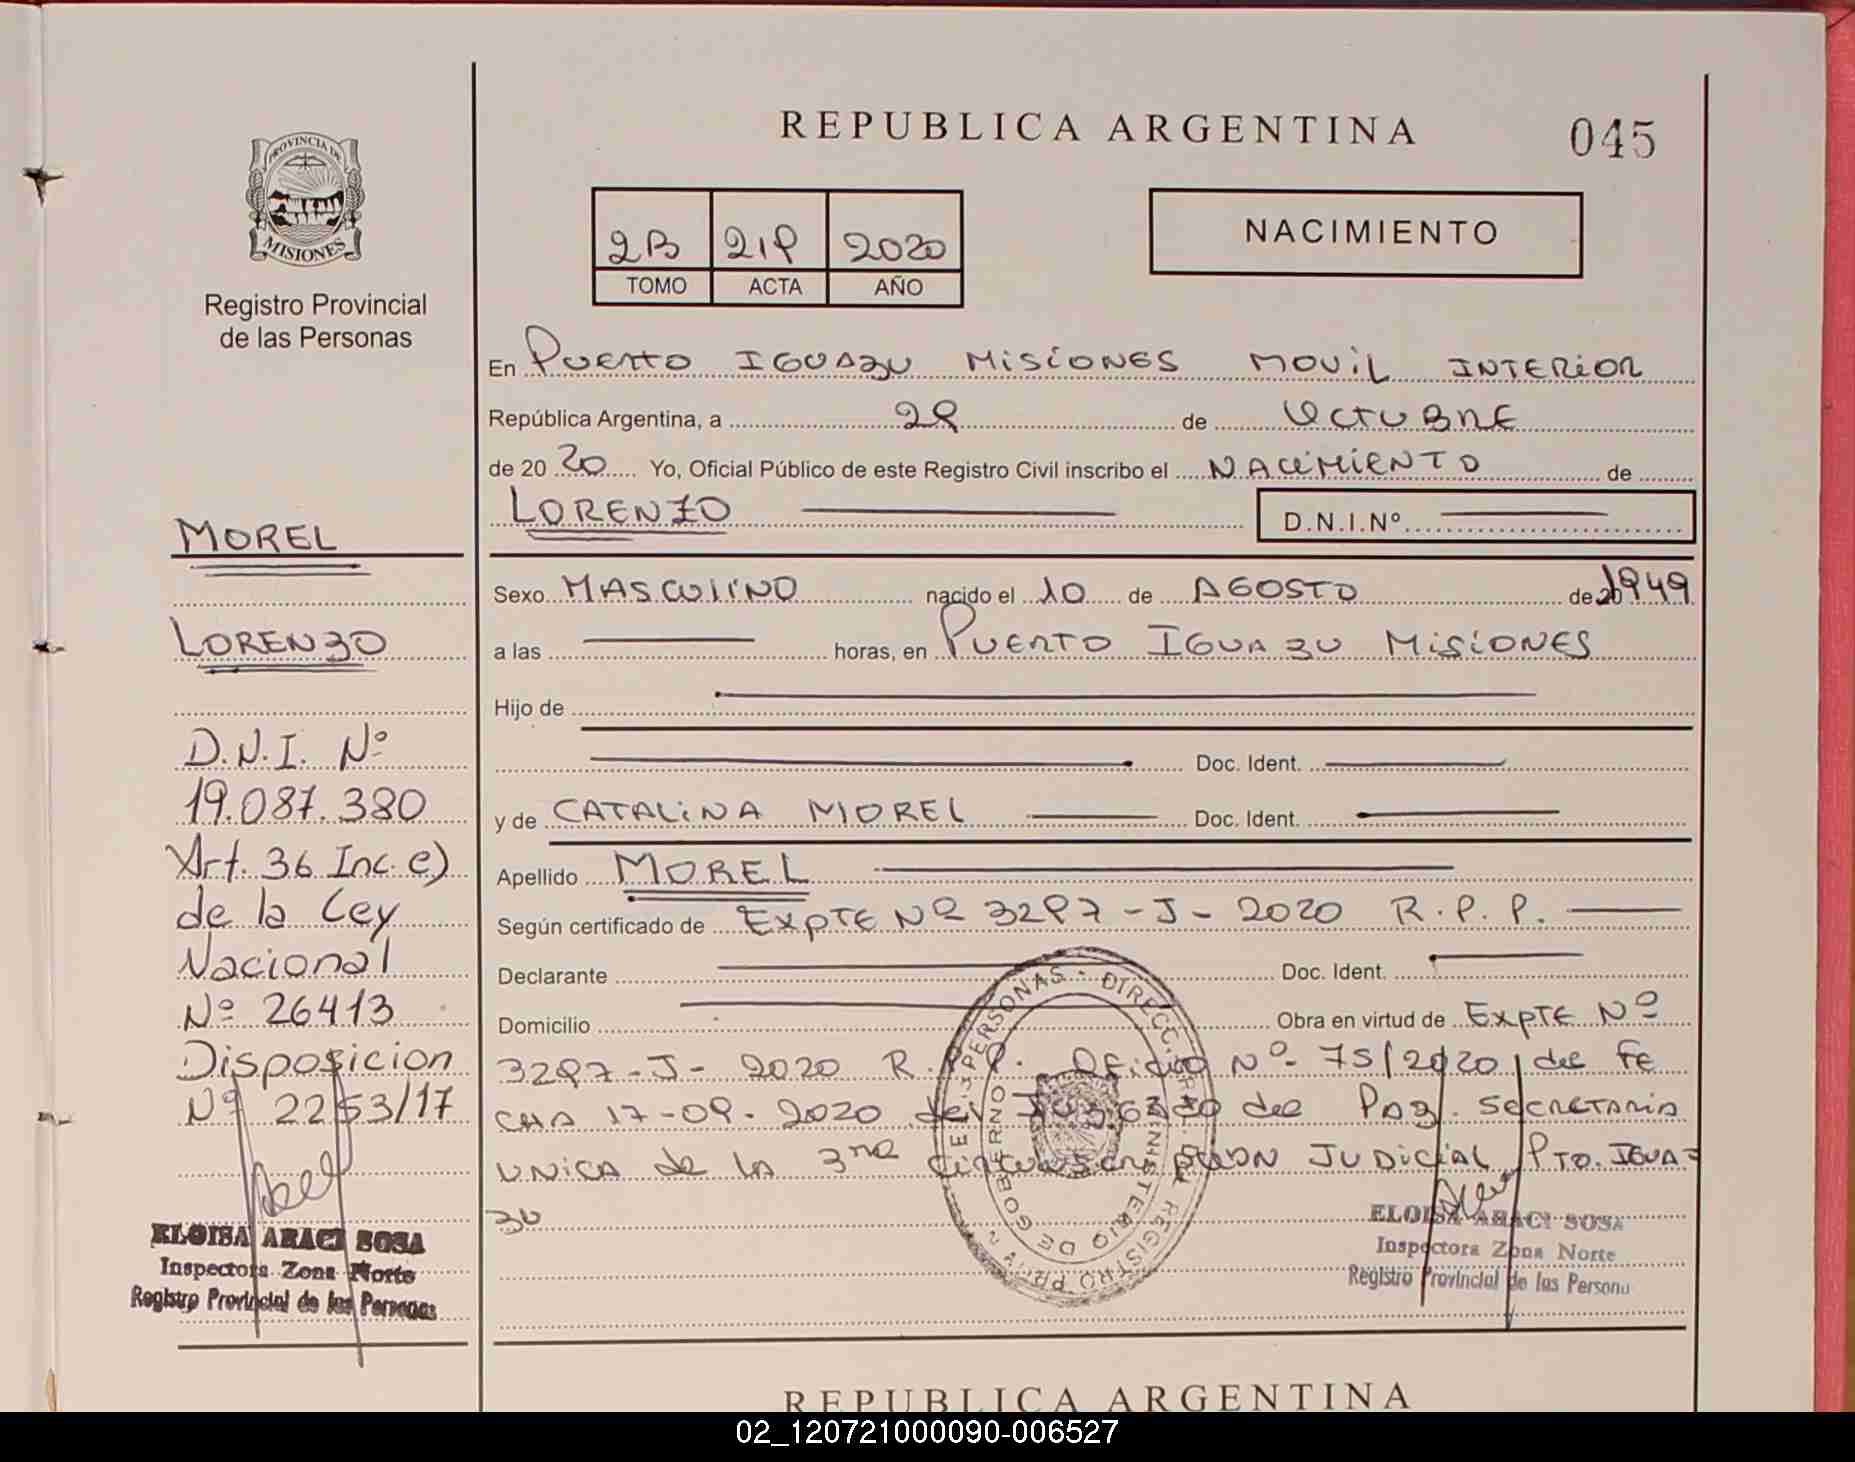 REPUBLICA ARGENTINA
045
PROVINCIA DE
MISIONES
Registro Provincial
de las Personas
2B 219 2020
TOMO ACTA AÑO
NACIMIENTO
En PUERTO IGUAZU MISIONES MOVIL INTERIOR
República Argentina, a 29 de OCTUBRE
de 20 20 Yo, Oficial Público de este Registro Civil inscribo el NACIMIENTO de
LORENZO D.N.I.Nº
Sexo MASCULINO nacido el 10 de AGOSTO de 1949
a las horas, en PUERTO IGUAZU MISIONES
Hijo de
Doc. Ident.
y de CATALINA MOREL Doc. Ident.
Apellido MOREL
Según certificado de EXPTE Nº 3297-J-2020 R.P.P.
Declarante Doc. Ident.
Domicilio Obra en virtud de EXPTE Nº
3297-J-2020 R.P.P. Oficio Nº 75/2020 de FE
CHA 17-09-2020 del Juzgado de PAZ. SECRETARIA
UNICA de LA 3ra Circunscripcion JUDICIAL PTO. IGUA-
ZU
MOREL
LORENZO
D.N.I. Nº
19.087.380
Art. 36 Inc. e)
de la Ley
Nacional
Nº 26413
Disposicion
Nº 2253/17
ELOISA ARACI SOSA
Inspectora Zona Norte
Registro Provincial de las Personas
ELOISA ARACI SOSA
Inspectora Zona Norte
Registro Provincial de las Persona
REPUBLICA ARGENTINA
02_120721000090-006527